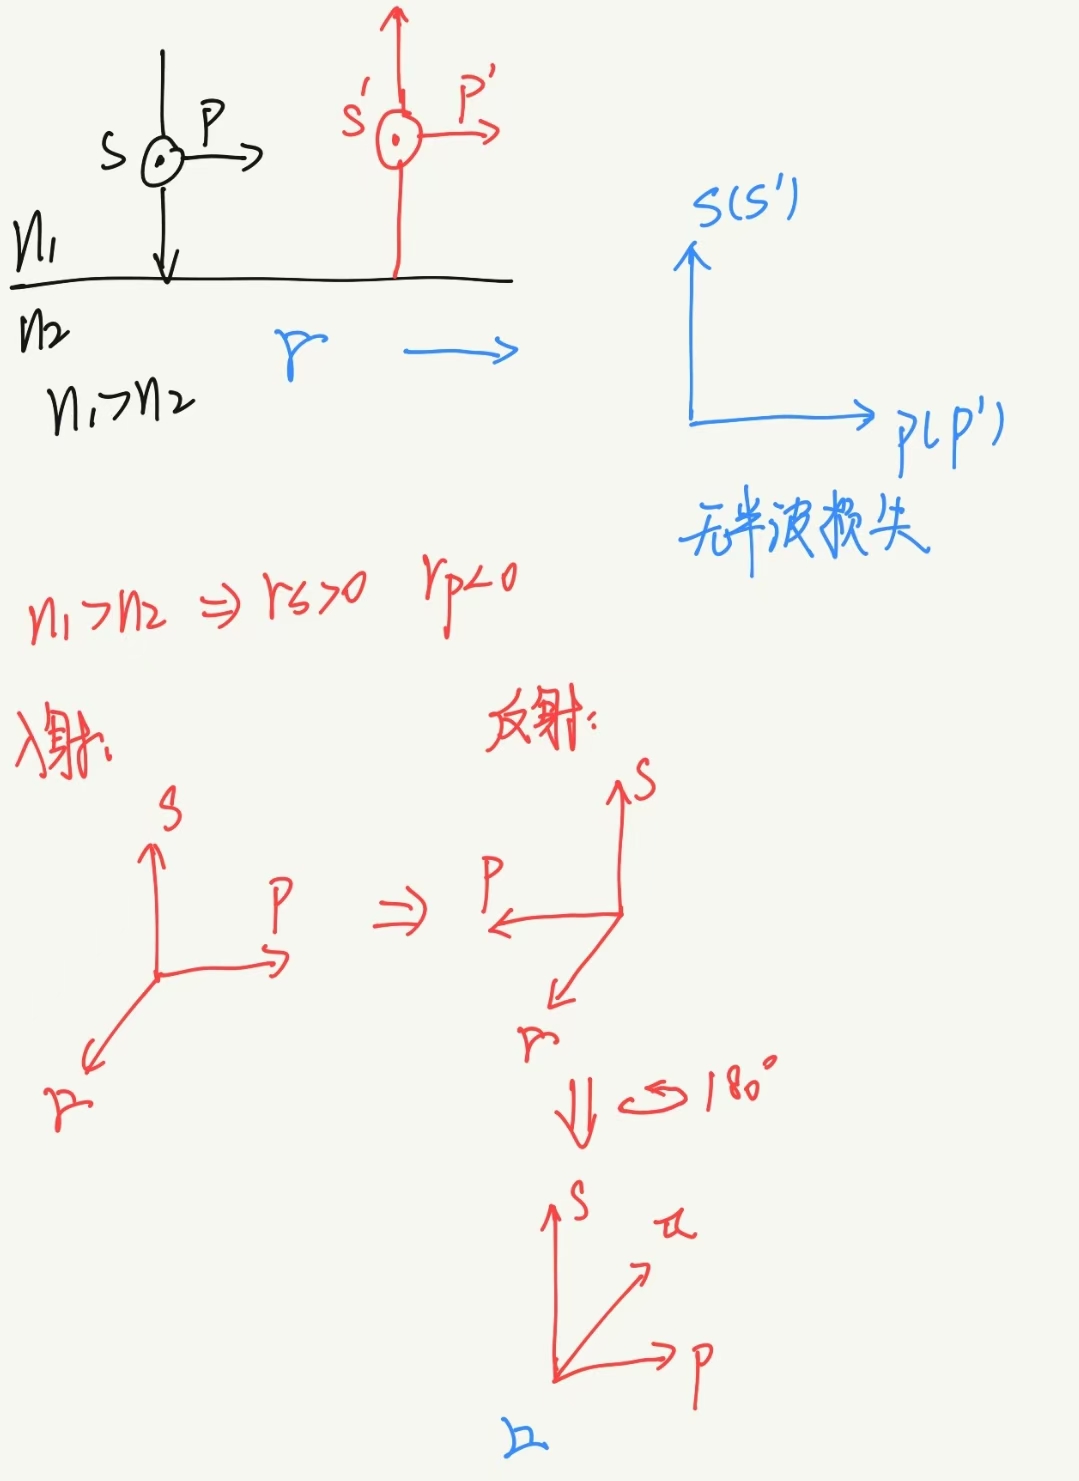 S P S' P'
n₁
n₂
n₁>n₂
S(S')
P(P')
无半波损失
n₁>n₂ ⇒ rs>0 rp<0
入射: 反射:
S P S P
⇒
180°
S
P